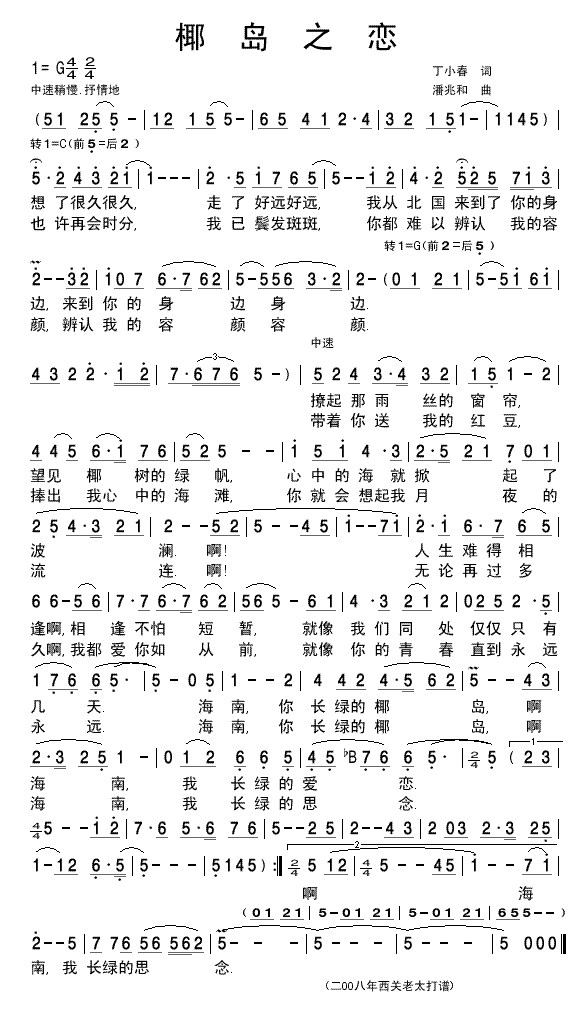 椰 岛 之 恋
1= G 4/4 2/4
丁小春 词
中速稍慢.抒情地
潘兆和 曲
(51 25 5- | 12 15 5- | 65 41 2·4 | 32 15 1- | 1145)|
转1=C(前5=后2)
5·2 43 21 | 1--- | 2·5 17 65 | 5--12 | 4·2 525 713 |
想了很久很久, 走了好远好远, 我从北国来到了你的身
也许再会时分, 我已鬓发斑斑, 你都难以辨认 我的容
转1=G(前2=后5)
2--32 | 107 6·7 62 | 5-556 3·2 | 2-(01 21 | 5-51 61 |
边, 来到你的身 边身 边.
颜, 辨认我的容 颜容 颜.
中速
43 22·12 | 7·676 5-) | 524 3·4 32 | 15 1-2 |
撩起那雨丝的窗帘,
带着你送我的红豆,
445 6·1 76 | 525-- | 1 51 4·3 | 2·5 21 701 |
望见椰树的绿帆, 心中的海就掀 起了
捧出我心中的海滩, 你就会想起我月 夜的
25 4·3 21 | 2--52 | 5--45 | 1--71 | 2·1 6·7 65 |
波 澜. 啊! 人生难得相
流 连. 啊! 无论再过多
66-56 | 7·7 6·7 62 | 565-61 | 4·3 212 | 0252·5 |
逢啊,相逢不怕短暂, 就像我们同处仅仅只有
久啊,我都爱你如从前, 就像你的青春直到永远
176 65· | 5-05 | 1--2 | 4 42 4·5 62 | 5--43 |
几天. 海南,你长绿的椰岛,啊
永远. 海南,你长绿的椰岛,啊
2·3 25 1- | 012 665 | 45 ♭B76 65· | 2/4 5 (23 |
1
海 南, 我长绿的爱 恋.
海 南, 我长绿的思 念.
4/4 5--12 | 7·6 5·6 76 | 5--25 | 2--43 | 203 2·3 25 |
1-12 6·5 | 5--- | 5145):‖ 2/4 5 12 | 4/4 5--45 | 1--71 |
2
啊 海
(01 21 | 5-01 21 | 5-01 21 | 655--)
2--5 | 7 76 56 562 | 5--- | 5--- | 5--- | 5 000‖
南,我长绿的思 念.
(二00八年西关老太打谱)